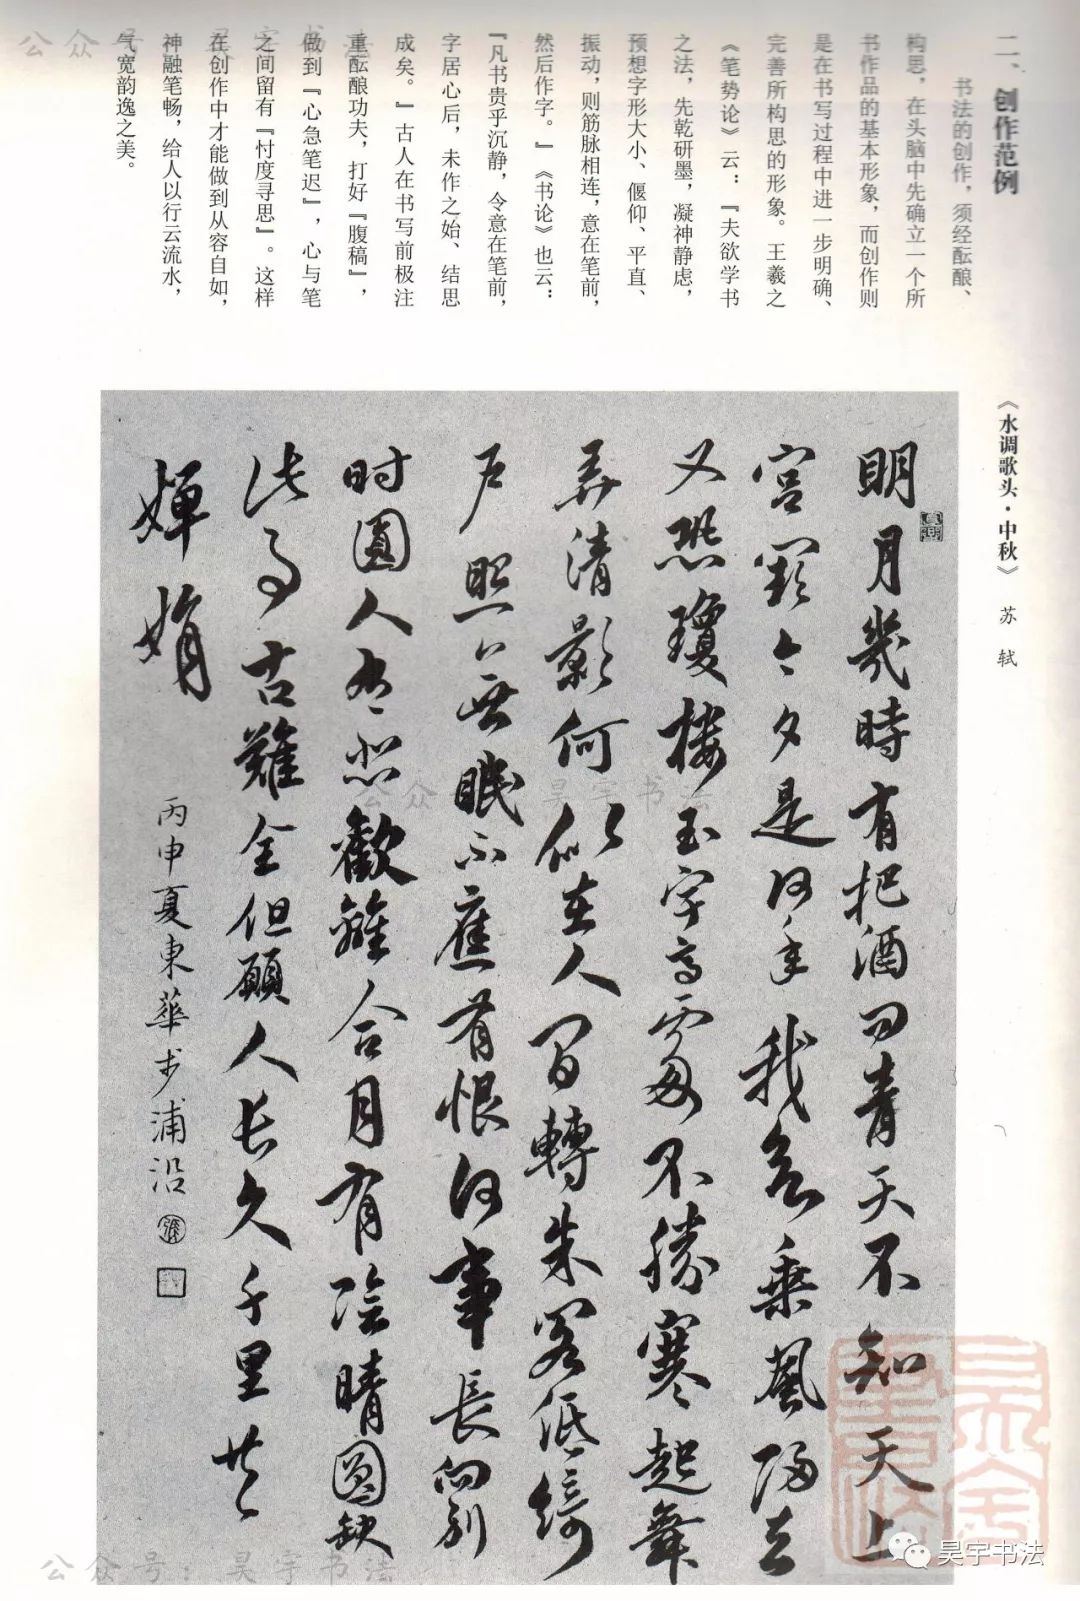 二、创作范例
书法的创作，须经酝酿、
构思，在头脑中先确立一个所
书作品的基本形象，而创作则
是在书写过程中进一步明确、
完善所构思的形象。王羲之
《笔势论》云：『夫欲学书
之法，先乾研墨，凝神静虑，
预想字形大小、偃仰、平直、
振动，则筋脉相连，意在笔前，
然后作字。』《书论》也云：
『凡书贵乎沉静，令意在笔前，
字居心后，未作之始、结思
成矣。』古人在书写前极注
重酝酿功夫，打好『腹稿』，
做到『心急笔迟』，心与笔
之间留有『忖度寻思』。这样
在创作中才能做到从容自如，
神融笔畅，给人以行云流水，
气宽韵逸之美。
《水调歌头·中秋》 苏轼
明月幾時有把酒问青天不知天上
宫闕今夕是何年我欲乘風歸去
又恐瓊樓玉宇高處不勝寒起舞
弄清影何似在人间轉朱阁低綺
户照無眠不應有恨何事長向别
时圓人有悲歡離合月有陰晴圆缺
此事古難全但願人长久千里共
嬋娟
丙申夏東華於浦沿
公众号：昊宇书法
公众号：昊宇书法
公众号：昊宇书法
昊宇书法